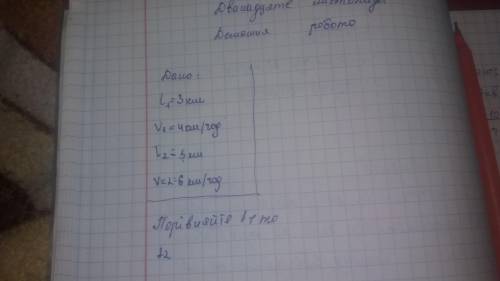 Дванадцяте листопада
Домашня робота
Дано:
l₁=3 км
V₁=4 км/год
l₂=3 км
V=2=6 км/год
Порівняйте t₁ та
t₂